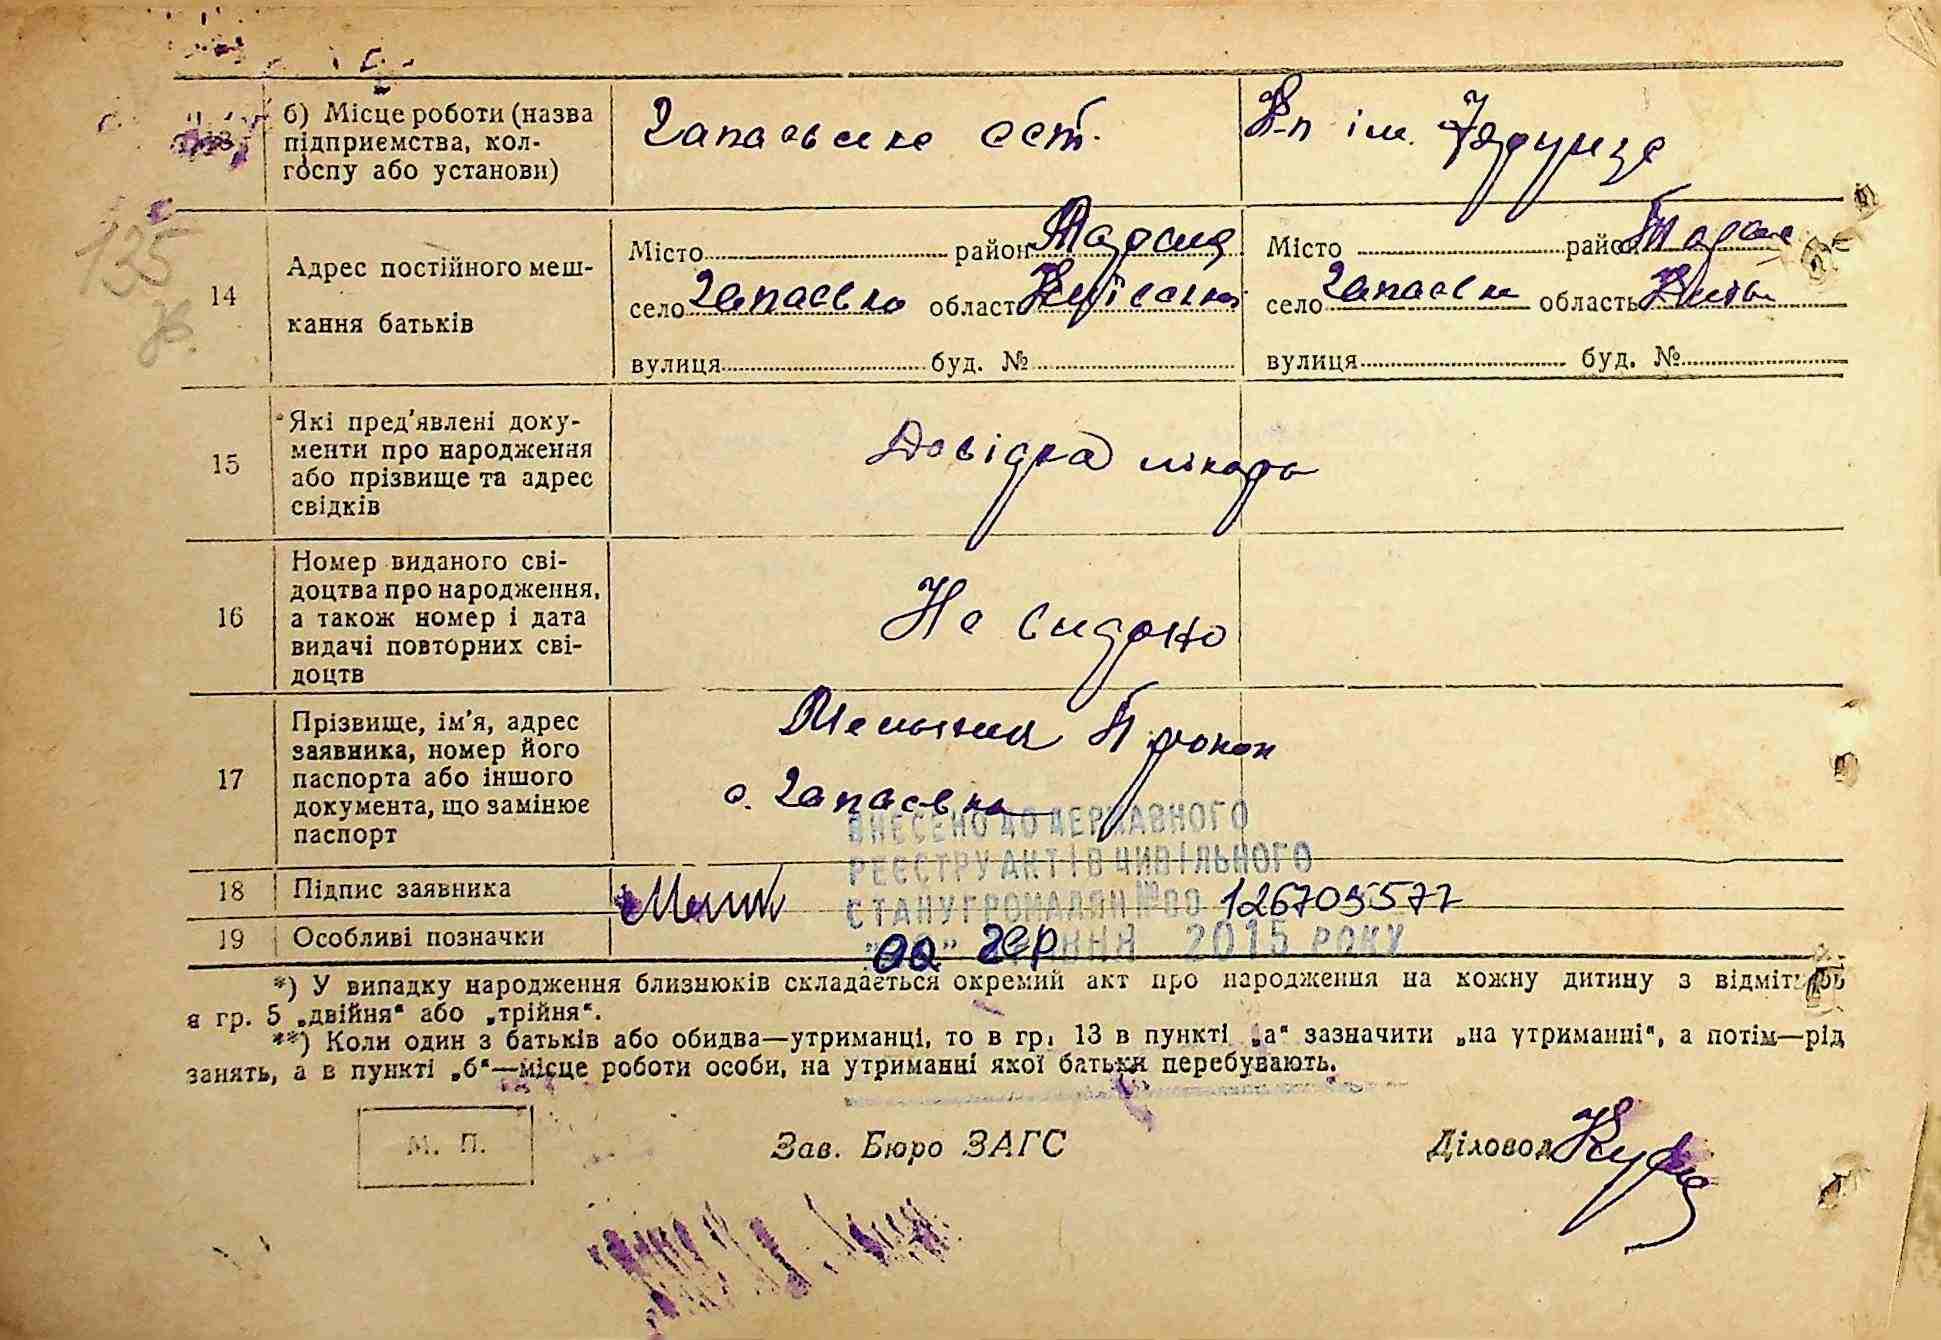 б) Місце роботи (назва
підприємства, кол-
госпу або установи)
Чапаєвське
К-п ім. Фрунзе
135
14
Адрес постійного меш-
кання батьків
Місто район Тараща
село Чапаєвка область Київська
вулиця буд. №
Місто район Тараща
село Чапаєвка область Київ
вулиця буд. №
15
Які пред'явлені доку-
менти про народження
або прізвище та адрес
свідків
Довідка лікаря
16
Номер виданого сві-
доцтва про народження,
а також номер і дата
видачі повторних сві-
доцтв
Не видано
17
Прізвище, ім'я, адрес
заявника, номер його
паспорта або іншого
документа, що замінює
паспорт
Мельник
с. Чапаєвка
ВНЕСЕНО ДО ДЕРЖАВНОГО
РЕЄСТРУ АКТІВ ЦИВІЛЬНОГО
СТАНУ ГРОМАДЯН №00
2015 РОКУ
18
Підпис заявника
19
Особливі позначки
*) У випадку народження близнюків складається окремий акт про народження на кожну дитину з відміткою
в гр. 5 „двійня“ або „трійня“.
**) Коли один з батьків або обидва—утриманці, то в гр. 13 в пункті „а“ зазначити „на утриманні“, а потім—рід
занять, а в пункті „б“—місце роботи особи, на утриманні якої батьки перебувають.
М. П.
Зав. Бюро ЗАГС
Діловод